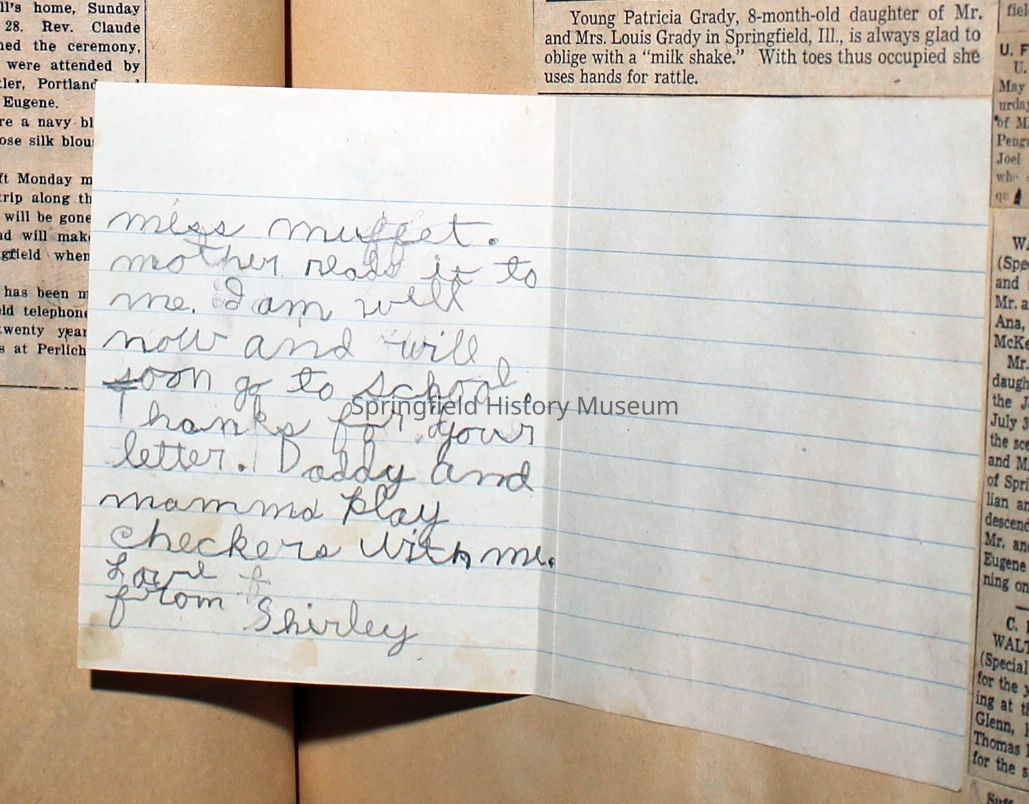 ll's home, Sunday
28. Rev. Claude
ned the ceremony,
were attended by
tler, Portland
Eugene.
re a navy bl
ose silk blou
ft Monday m
trip along th
will be gone
nd will mak
gfield when
has been m
ld telephone
twenty year
s at Perlich
Young Patricia Grady, 8-month-old daughter of Mr.
and Mrs. Louis Grady in Springfield, Ill., is always glad to
oblige with a "milk shake." With toes thus occupied she
uses hands for rattle.
miss muffet.
mother reads it to
me. I am well
now and will
soon go to school.
Thanks for your
letter. Daddy and
mamma play
checkers with me.
Love
from Shirley
Springfield History Museum
fiel
U. F
U.
May
urday
of M
Peng
Joel
who
W.
(Spec
and
Mr. a
Ana,
McKe
Mr.
daugh
the J
July 3
the sce
and M
of Spri
lian an
descend
Mr. an
Eugene
ning on
C. 
WALT
(Special
for the y
ing at th
Glenn,
Thomas
for the s